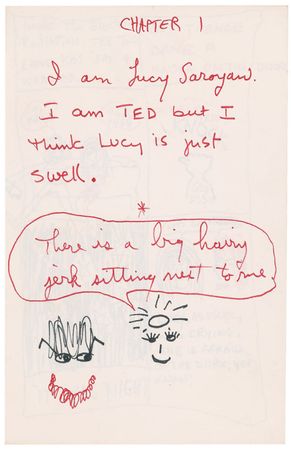 CHAPTER 1
I am Lucy Saroyan.
I am TED but I
think Lucy is just
swell.
*
There is a big hairy
jerk sitting next to me.